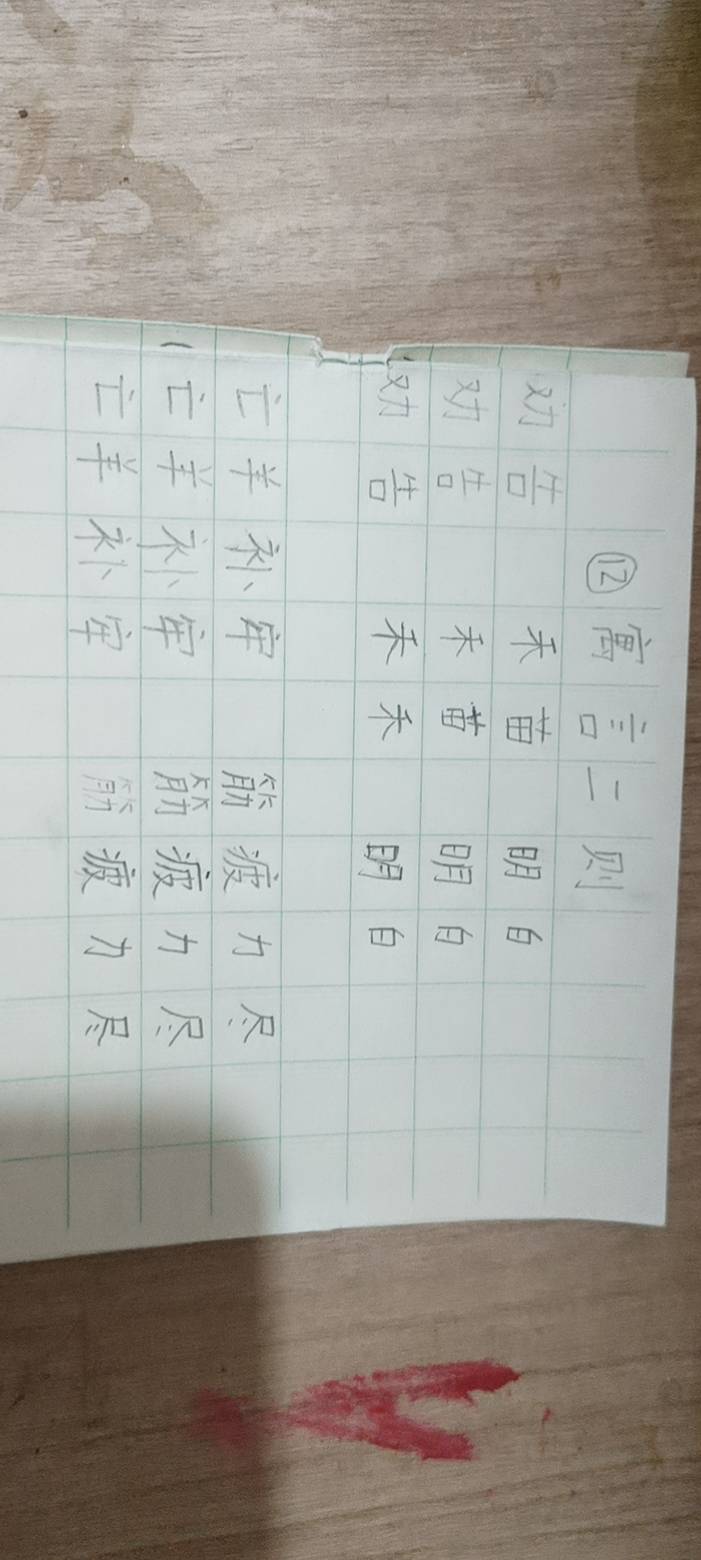 ⑫ 寓言二则
劝告 禾苗 明白
劝告 禾苗 明白
劝告 禾禾 明白
亡羊补牢 筋疲力尽
亡羊补牢 筋疲力尽
亡羊补牢 筋疲力尽